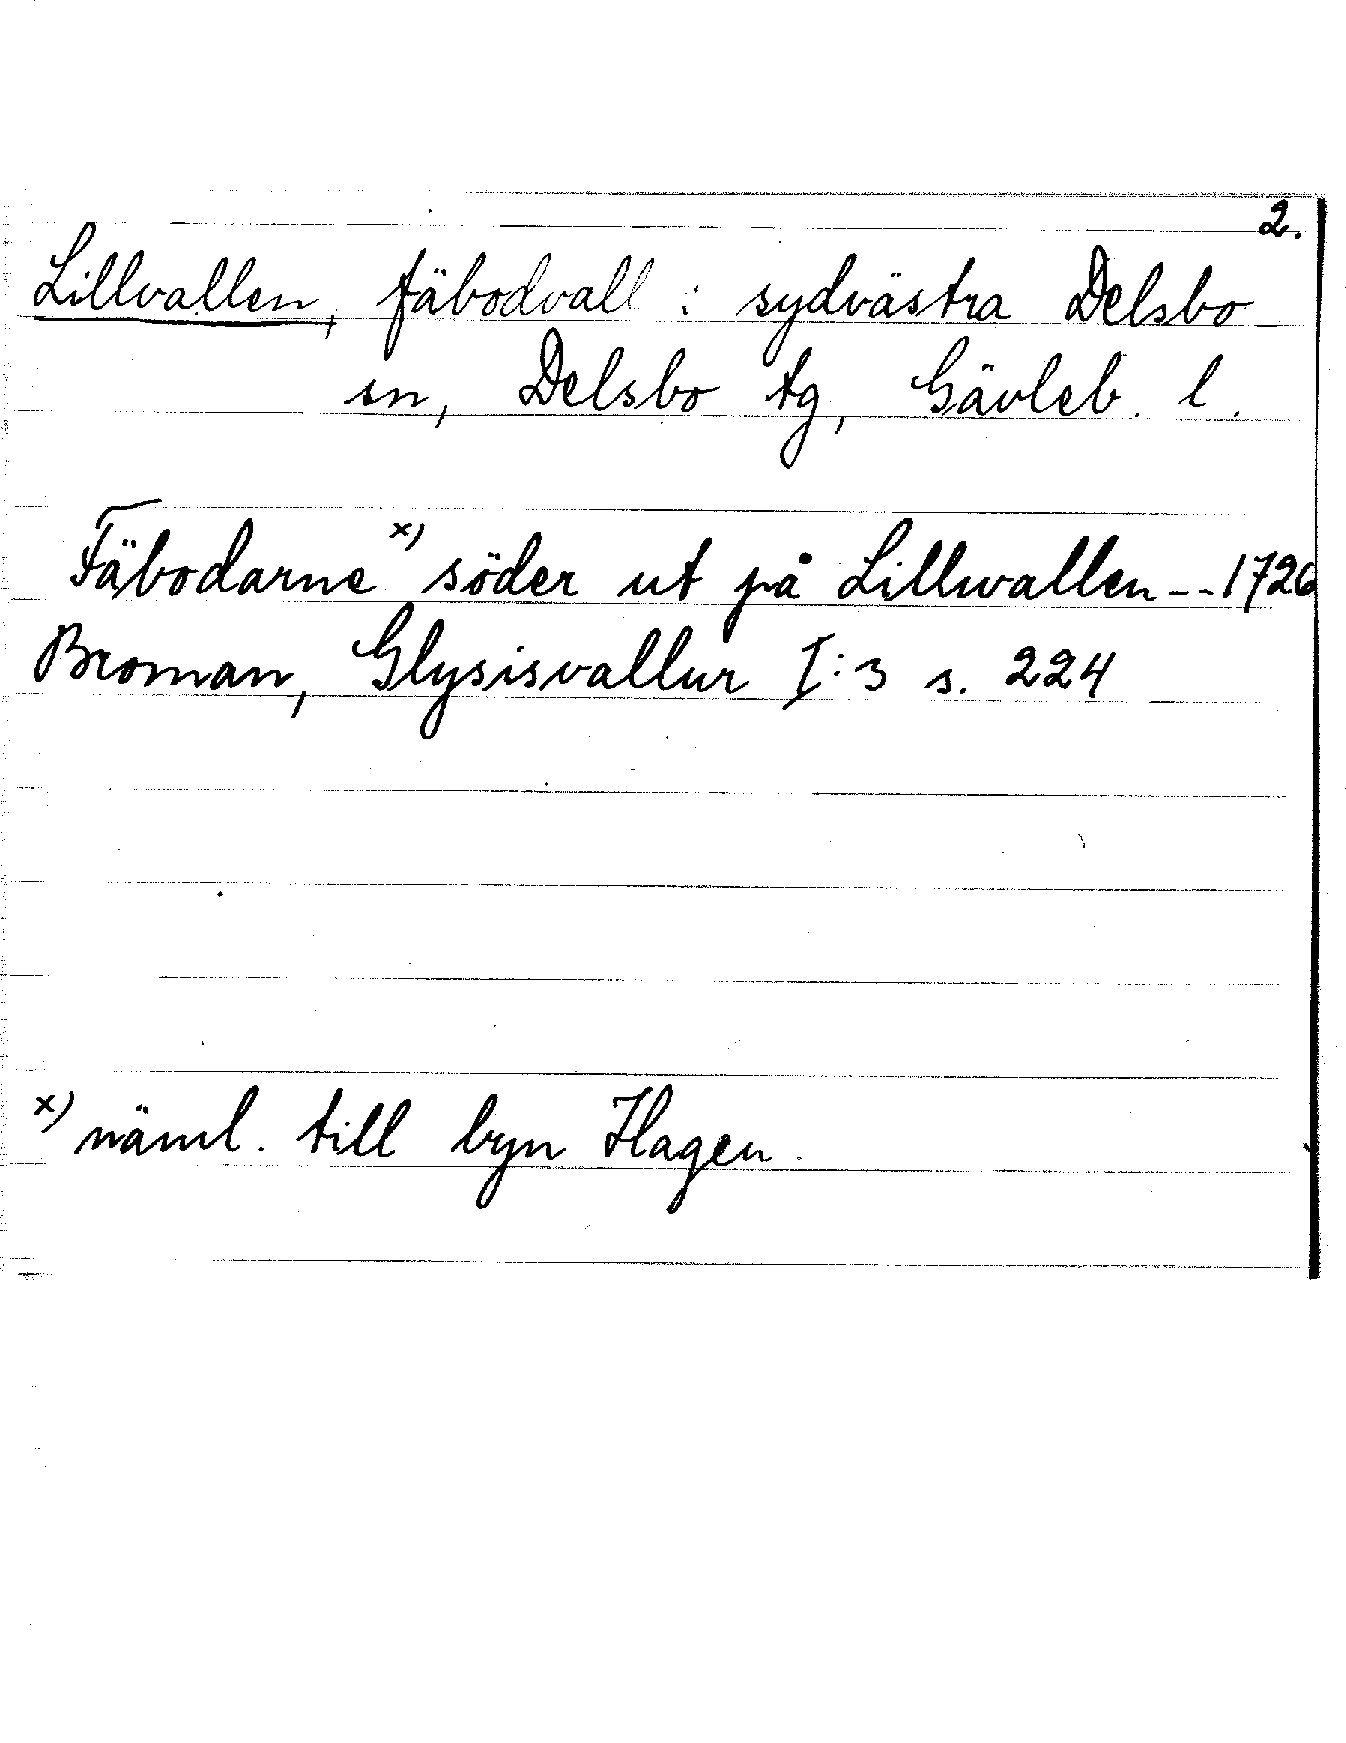 2.
Lillvallen, fäbodvall i sydvästra Delsbo
sn, Delsbo tg, Gävleb. l.
Fäbodarne x) söder ut på Lillwallen -- 1726
Broman, Glysisvallur I:3 s. 224
x) näml. till byn Hagen.